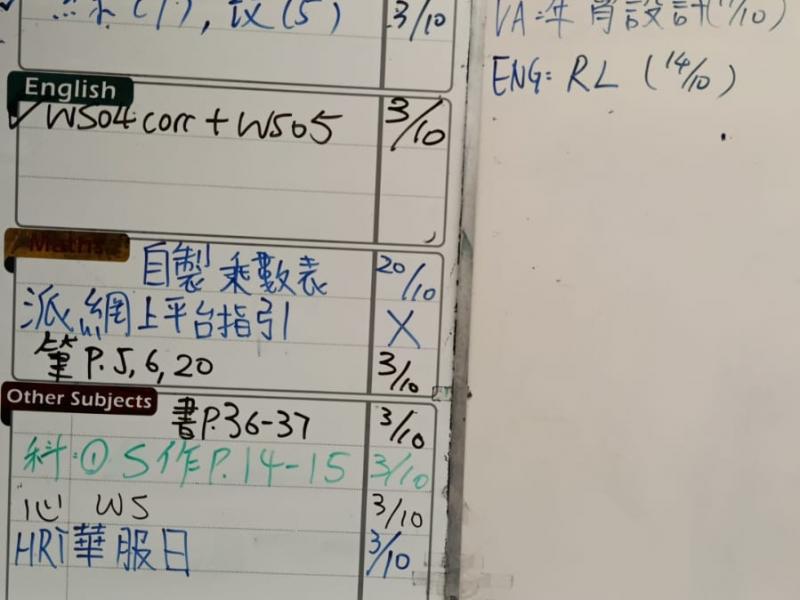 (5) 3/10
(/10)
ENG: RL (14/10)
English
✓ WS04 corr + WS05 3/10
Maths
自製乘數表 20/10
派網上平台指引 X
筆 P.5, 6, 20 3/10
Other Subjects
書P.36-37 3/10
科:① S作P.14-15 3/10
心 WS 3/10
HRT華服日 3/10